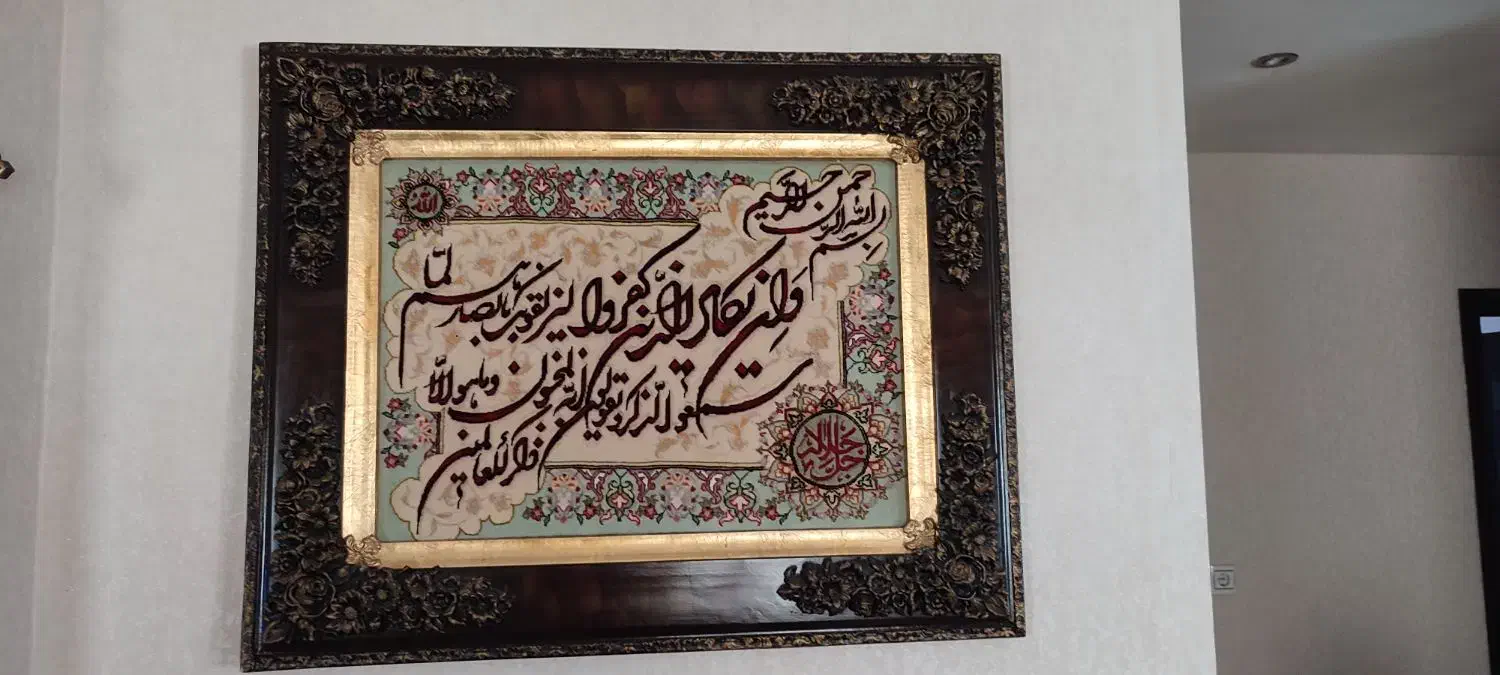 الله
بسم الله الرحمن الرحیم
وإن یکاد الذین کفروا لیزلقونک بابصارهم لمّا
سمعوا الذکر و یقولون إنه لمجنون وماهو الّا
ذکر للعالمین
جل جلاله